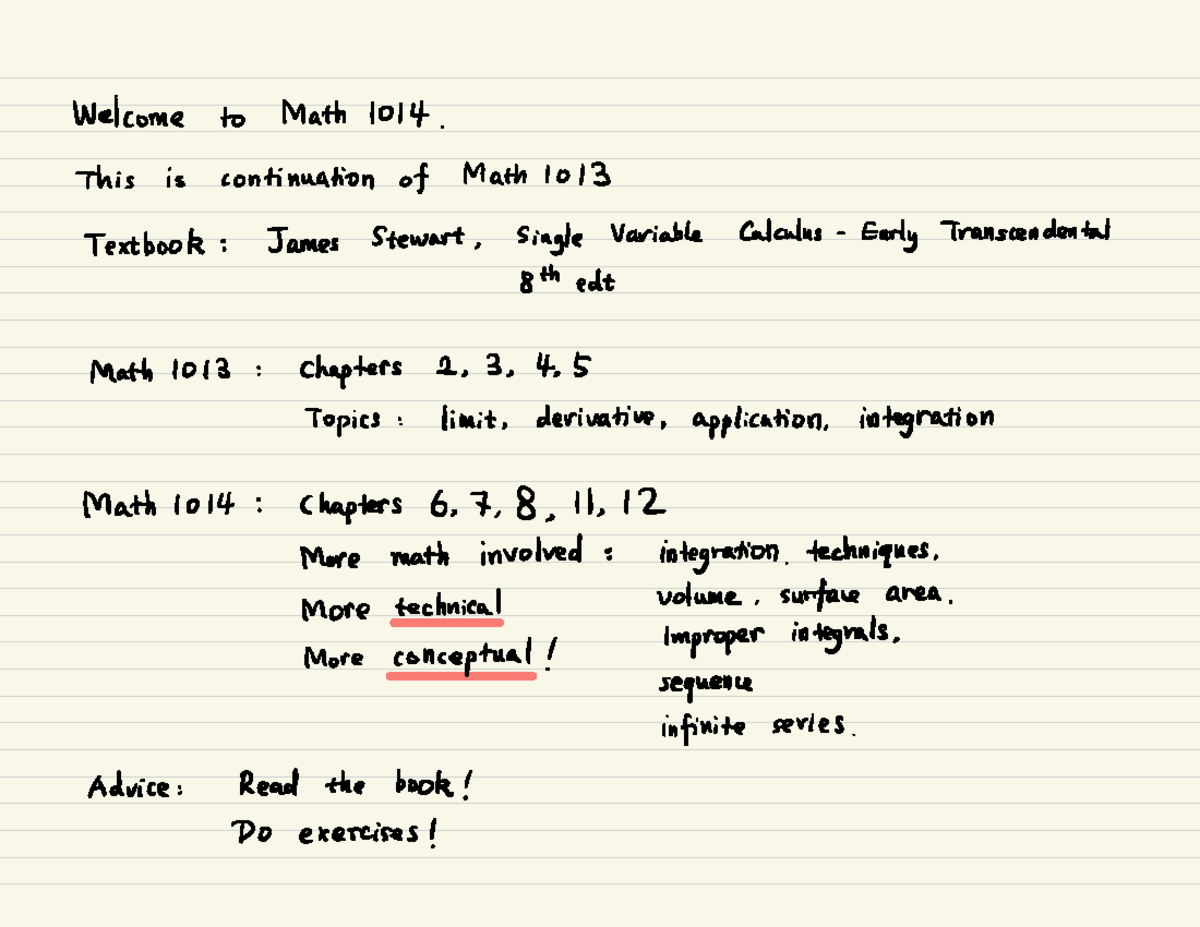 Welcome to Math 1014.
This is continuation of Math 1013
Textbook: James Stewart, Single Variable Calculus - Early Transcendental
8th edt
Math 1013: Chapters 2, 3, 4, 5
Topics: limit, derivative, application, integration
Math 1014: Chapters 6, 7, 8, 11, 12
More math involved: integration techniques,
More technical volume, surface area.
Improper integrals,
More conceptual!
sequence
infinite series.
Advice: Read the book!
Do exercises!